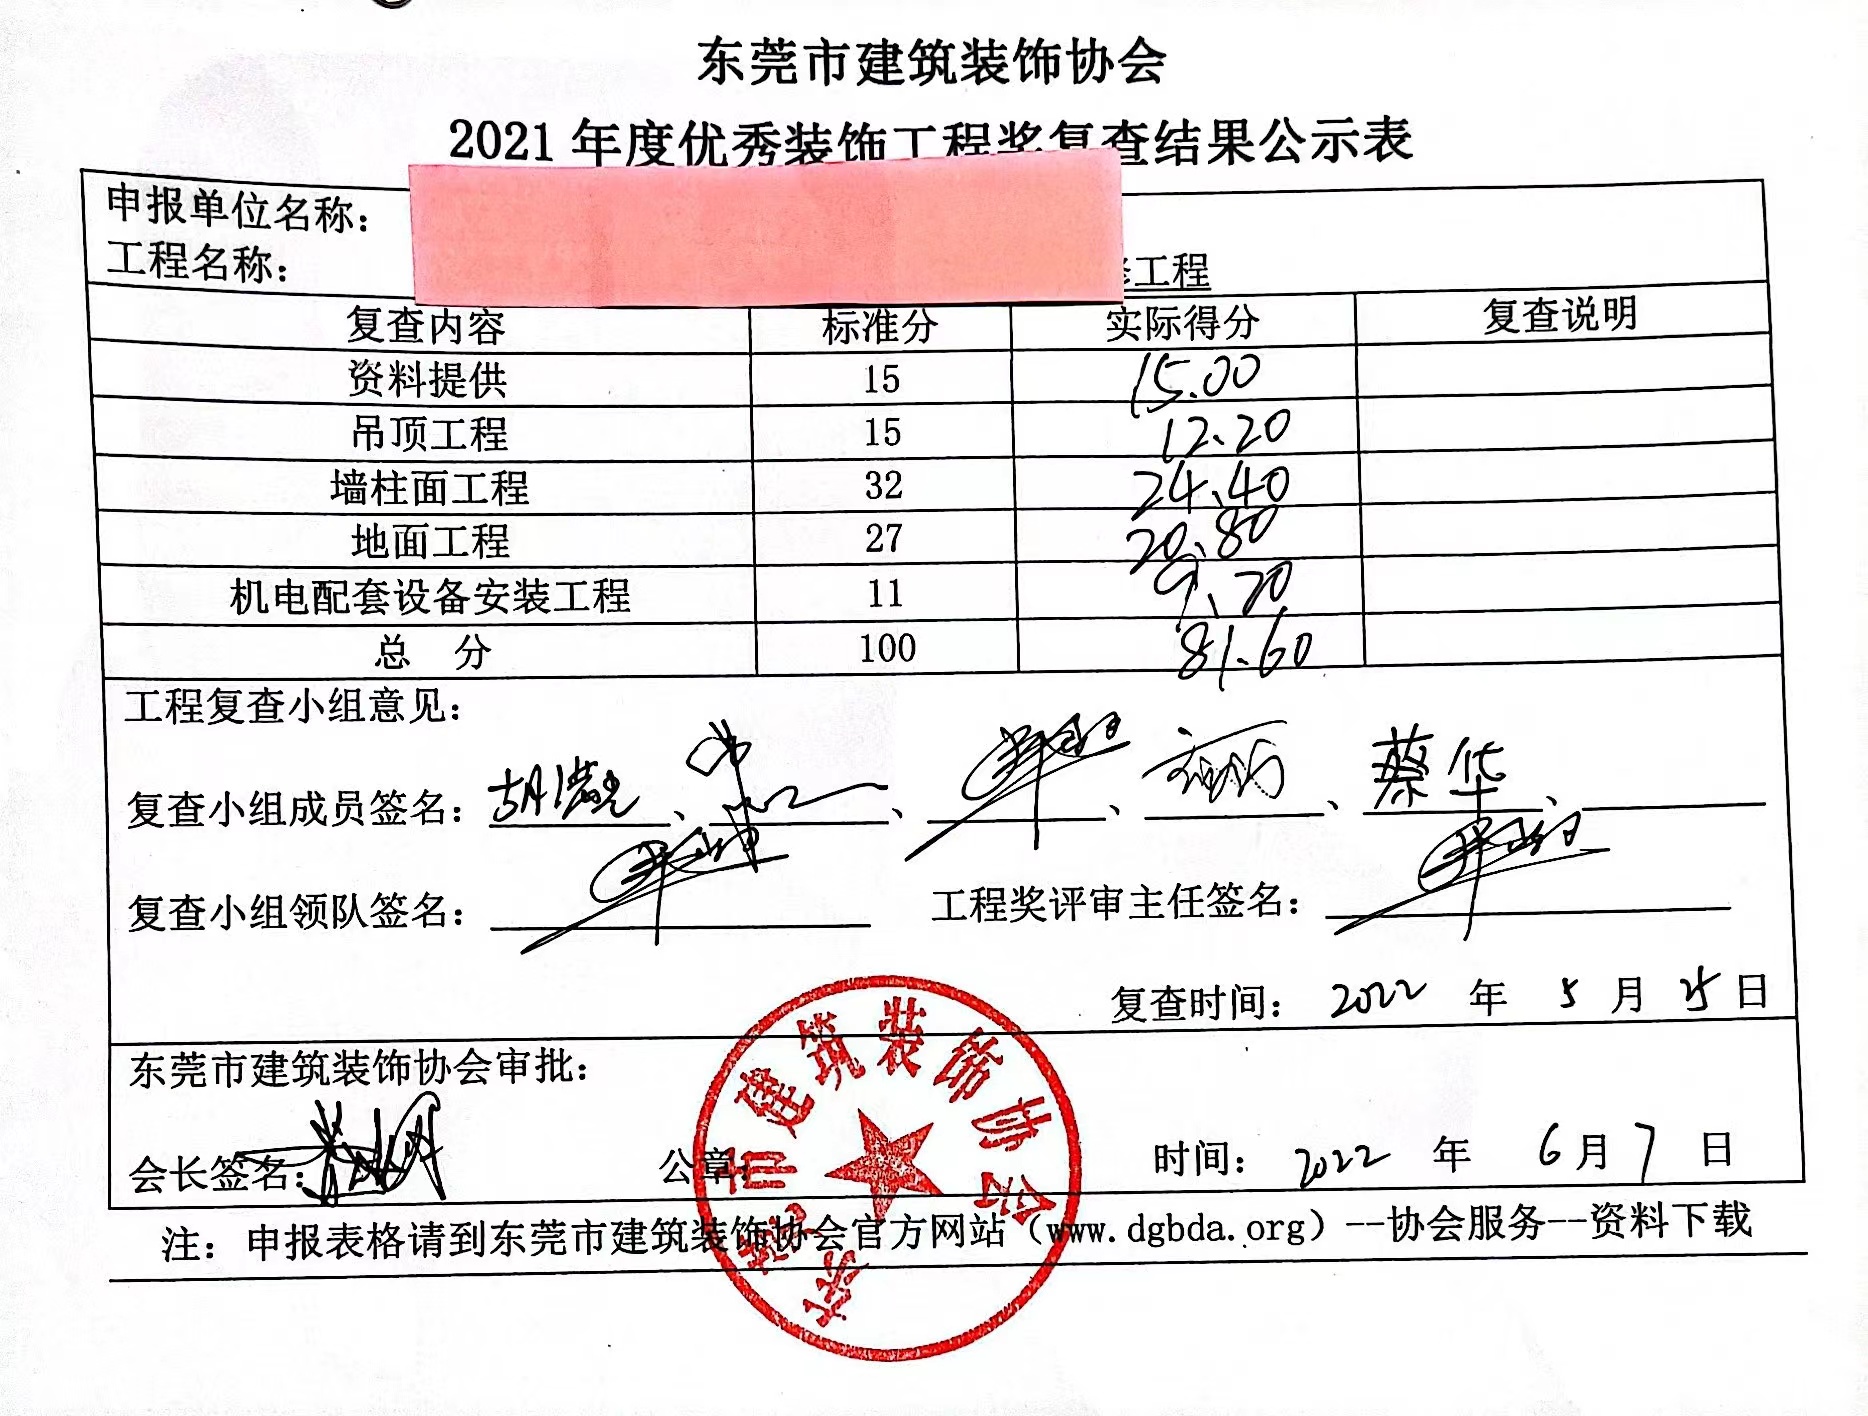 东莞市建筑装饰协会
2021年度优秀装饰工程奖复查结果公示表
申报单位名称：
工程名称： 工程
复查内容 标准分 实际得分 复查说明
资料提供 15 15.00
吊顶工程 15 12.20
墙柱面工程 32 24.40
地面工程 27 20.80
机电配套设备安装工程 11 9.20
总 分 100 81.60
工程复查小组意见：
复查小组成员签名： 、 、 、 、蔡华、
复查小组领队签名： 工程奖评审主任签名：
复查时间： 2022 年 5 月 25 日
东莞市建筑装饰协会审批：
会长签名： 公章： 时间： 2022 年 6 月 7 日
东莞市建筑装饰协会
注：申报表格请到东莞市建筑装饰协会官方网站（www.dgbda.org）--协会服务--资料下载